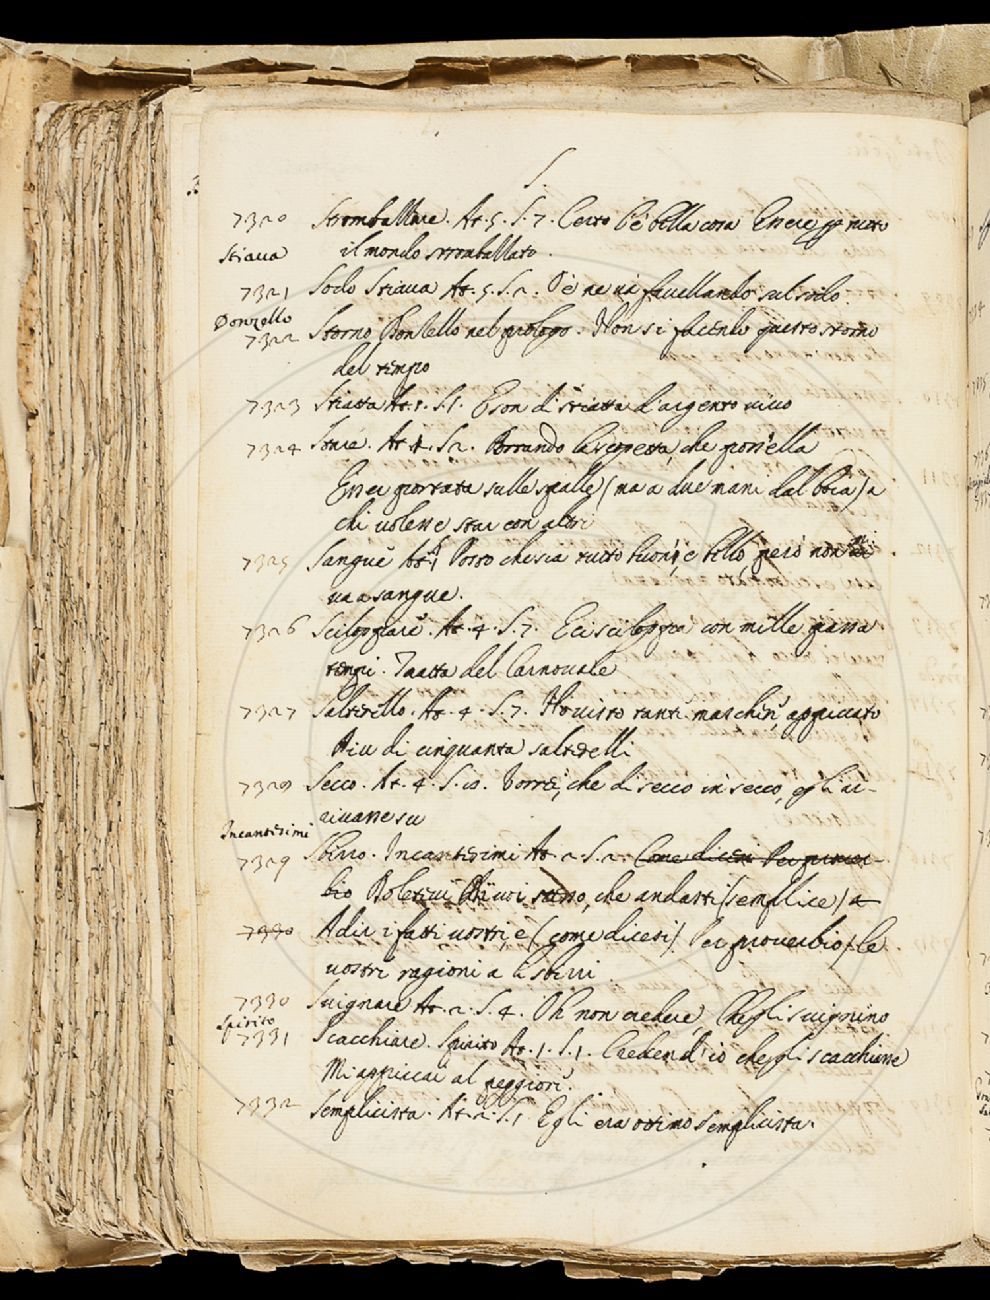 S.
7320 Stromballare. At. 5. S. 7. Certo l'è bella cosa Essere per tutto
il mondo stromballato.
Stiava
7321 Sodo Stiava At. 5. S. 2. Se ne va favellando sul sodo.
Donzello
7322 Storno Donzello nel prologo. Non si facendo questo storno
del tempo
7323 Stiatta At. 1. S. 1. E son di stiatta d'argento vivo
7324 At. 4. S. 2. Portando la che poss'ella
Esser portata sulle spalle (ma a due mani dal Boia) a
chi volesse star con altri
7325 Sangue At. Posto che sia tutto buono, e bello, però non
va a sangue.
7326 At. 4. S. 7. E ci con mille passa
tempi. Tratta del Carnovale
7327 Salterello. At. 4. S. 7. Ho visto tanti maschin' appiccato
Piu di cinquanta salterelli
7328 Secco. At. 4. S. 10. Vorrei, che di secco in secco, egli ar-
rivasse su
Incantesimi
7329 Sbirro. Incantesimi At. 2. S. 2. Come dicesi Per prover-
bio Volete voi che andasti (semplice) a
7330 A dir i fatti vostri, e (come dicesi) Per proverbio, le
vostre ragioni a li sbirri
7330 Svignare At. 2. S. 4. Oh non credere, Che gli svignino
Spirito
7331 Scacchiare. Spirito At. 1. S. 1. Credend'io che gli scacchiasse
Mi appiccai al peggiore.
7332 Semplicista. At. 2. S. 1. Egli era ottimo Semplicista.